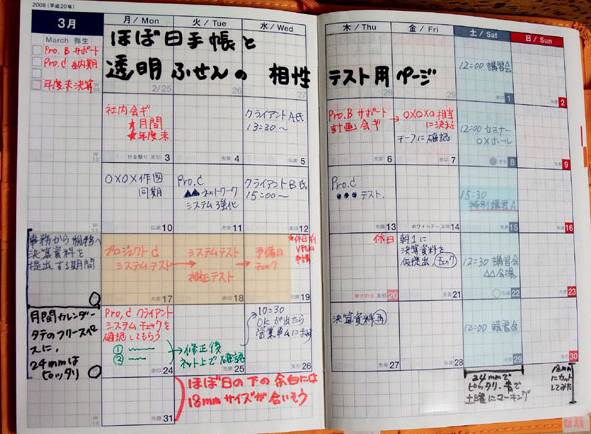 2008（平成20年）
3月
March 弥生
月 / Mon
火 / Tue
水 / Wed
木 / Thu
金 / Fri
土 / Sat
日 / Sun
ほぼ日手帳と
透明ふせんの 相性
テスト用ページ
Pro.B サポート
Pro.C 社内期
年度末決算
2/25
12:00 講習会
1
2
社内会ギ
★月間
★年度末
クライアントA氏
13:30〜
Pro.B サポート
計画会ギ
→ ○×○×担当
に決まる
テーフに確認
12:00 セミナー
○×ホール
3
4
5
6
7
8
9
○×○×作図
同期
Pro.C
▲▲ネットワーク
システム強化
クライアントB氏
15:00〜
Pro.C
●●●テスト.
15:30
特別講習A
10
11
12
13
14
15
16
総務から
決算資料を
提出する期間
プロジェクトC
システムテスト
システムテスト
検証テスト
予備日
チェック
休日
朝1に
決算資料を
仮提出
チェック
12:30 講習会
△△会場
17
18
19
20
21
22
23
月間カレンダー
タテのフリースペース
に、
24mmは
ピッタリ
Pro.C クライアント
システムチェックを
確認してもらう
①
②
→修正後
ネット上で確認
10:30
OKが出たら
決算資料再
12:00 講習会
24
25
26
27
28
29
30
31
ほぼ日の下の余白には
18mmサイズが合いそう
24mmで
ピッタリ、青で
土曜にマーキング
18mm
にカット
してみた